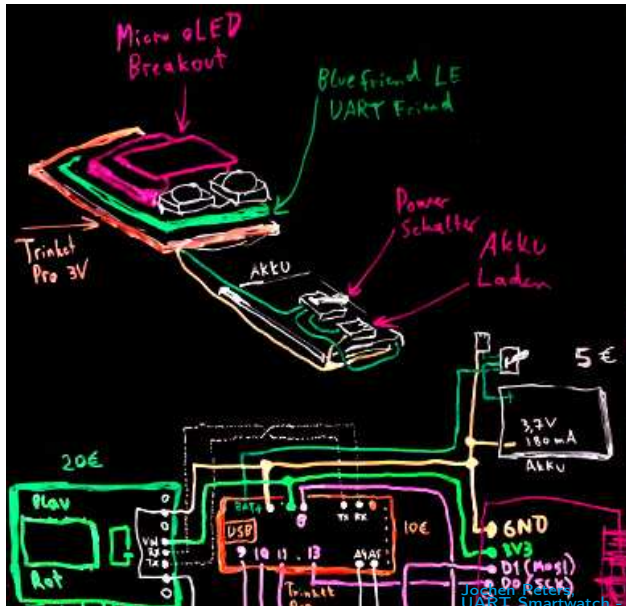 Micro OLED
Breakout
Bluefriend LE
UART Friend
Power
Schalter
Akku
Laden
Trinket
Pro 3V
AKKU
5€
3,7V
180mA
Akku
20€
BAT+
8
TX RX
10€
USB
9 10 11 13
A4 A5
Trinket
Pro
Blau
Rot
VIN
RX
TX
GND
3V3
D1 (MOSI)
D0 (SCK)
Jochen Peters
UART Smartwatch